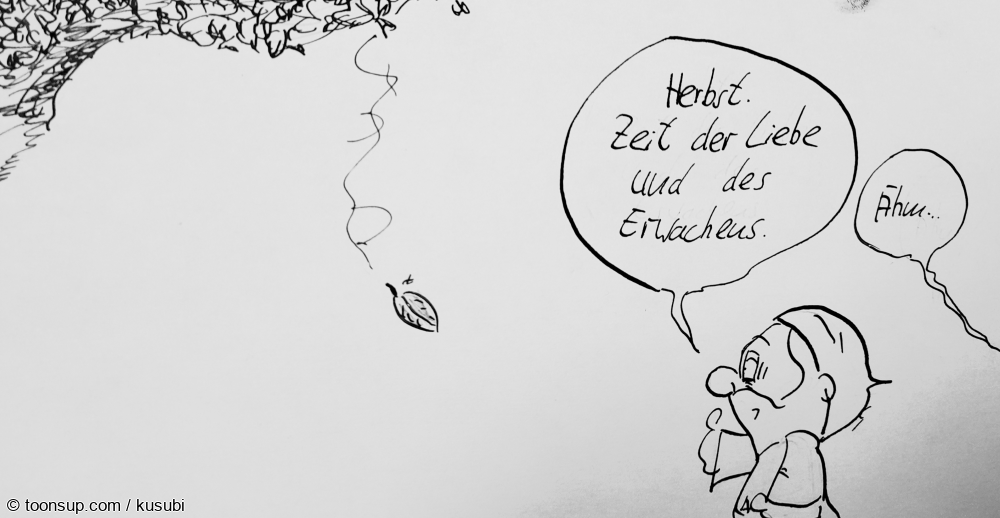 Herbst.
Zeit der Liebe
und des
Erwachens.
Ähm...
© toonsup.com / kusubi